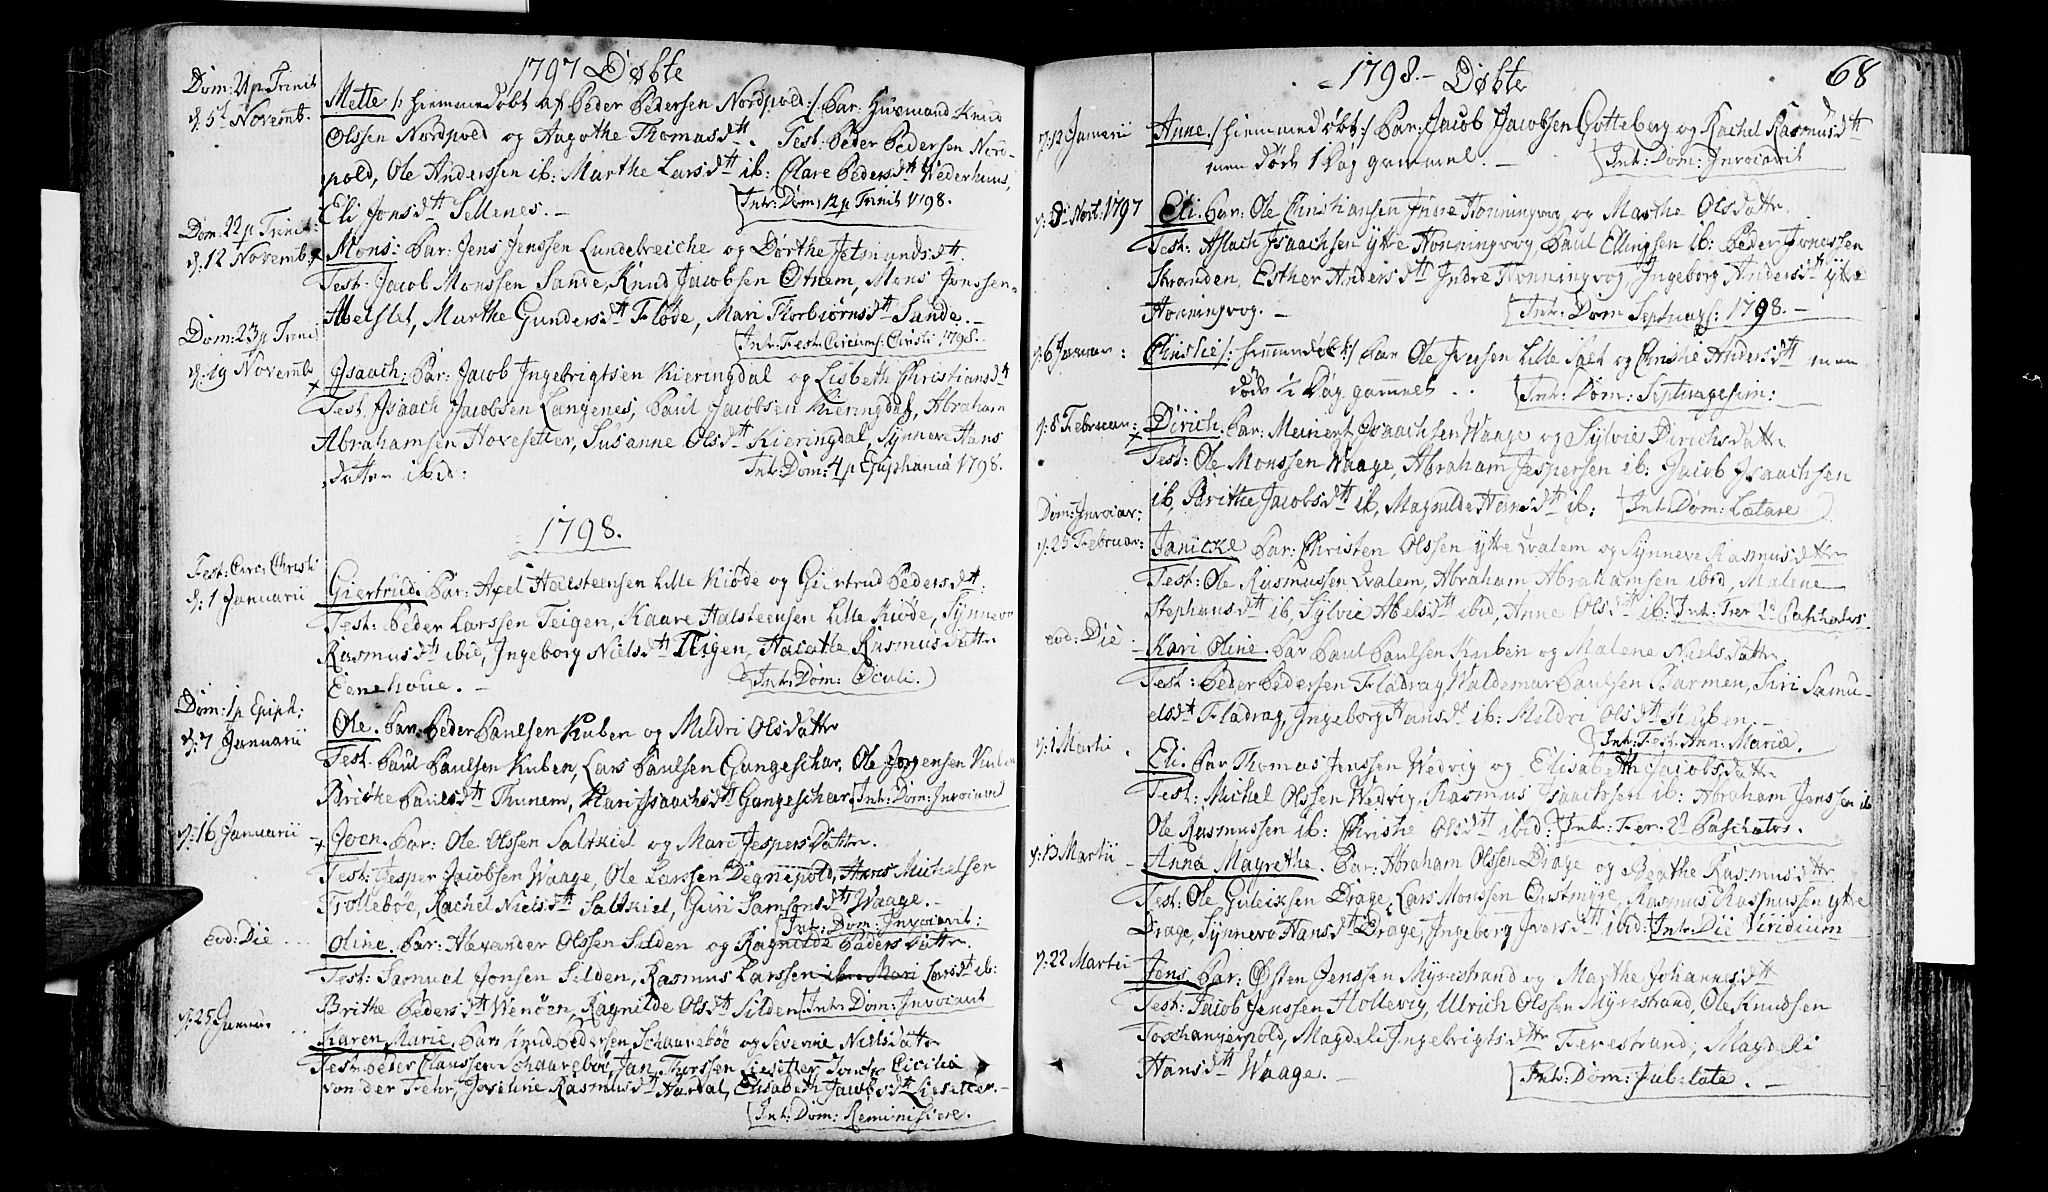 1797 Døbte
Dom: 21 p Trinit
d: 5t Novemb.
Mette /: hiemmedøbt af Peder Pedersen Nordpold :/ Par: Huusmand Knud
Olssen Nordpold og Aagothe Thomasdtt. Test: Peder Pedersen Nord-
pold, Ole Anderssen ib: Marthe Larsdtt ib: Clare Pedersdtt Wederhuus,
Eli Jonsdtt Sellenes. -
Int: Dom: 12 p Trinit 1798.
Dom: 22 p Trinit:
d: 12 Novemb:
Mons: Par: Jens Jenssen Lundebreiche og Dorthe Jetmundsdtt.
Test: Jacob Monssen Sande, Knud Jacobsen Otnem, Mons Jonssen
Abelslet, Marthe Gundersdtt Fløde, Mari Thorbiørnsdtt Sande. -
Int: Fest: Circums: Christi 1798.
Dom: 23 p Trinit
d: 19 Novemb
Isaach: Par: Jacob Ingebrigtsen Kieringdal og Lisbeth Christiansdtt
Test, Isaach Jacobsen Langenes, Paul Jacobsen Kieringdal, Abraham
Abrahamsen Hovesetter, Susanne Olsdtt Kieringdal, Synneve Hans
datter ibid:
Int: Dom: 4 p Epiphania 1798.
1798.
Fest: Circ: Christi
d: 1 Januarii
Giertrud. Par: Axel Halsteensen Lille Kiøde og Giertrud Pedersdtt:
Test: Peder Larssen Teigen, Kaare Halsteensen Lille Kiøde, Synneve
Rasmusdtt ibid, Ingeborg Nielsdtt Teigen, Rasmusdatter
Eenehoue. -
Int: Dom: Oculi.
Dom: 1 p Epiph:
d: 7 Januarii
Ole. Par: Peder Paulsen Kuben og Mildri Olsdatter
Test: Paul Paulsen Kuben, Lars Paulsen Gangeschar, Ole Jørgensen Kuben
Brithe Paulsdtt Thunem, Mari Isaachsdtt Gangeschar. Int: Dom: Invocavit
d: 16 Januarii
Joen. Par: Ole Olssen Saltkiel og Mari Jespersdatter.
Test: Jesper Jacobsen Waage, Ole Larssen Degnepold, Hans Michelsen
Trollebøe, Rachel Nielsdtt Saltkiel, Guri Samsonsdtt Waage. -
Int: Dom: Invocavit:
eod: Die ...
Oline. Par: Alexander Olssen Silden og Ragnilde Pedersdatter.
Test: Samuel Jonsen Silden, Rasmus Larssen ib: Mari Larsdtt ib:
Brithe Pedersdtt Wenøen, Ragnilde Olsdtt Silden. Int: Dom: Invocavit
d: 25 Januar
Karen Marie. Par: Knud Pedersen Schaarebøe og Severine Nielsdatter
Test: Peder Claussen Schaarebøe, Jan Thorssen Liesetter, Cicilia
von der Fehr, Joveline Rasmusdtt Hardal, Elisabeth Jacobsdtt Liesetter. -
Int: Dom: Reminiscere.
1798. - Døbte
68
d: 12 Januarii
Anne /: hiemmedøbt :/ Par: Jacob Jacobsen Gotteberg og Rachel Rasmusdtt
men døde 1 Dag gammel. -
Int: Dom: Invocavit
Nov: 1797
Eli. Par: Ole Christiansen Indre Honningvog og Marthe Olsdatter
Test: Aslach Isaachsen ytte Honningvog, Paul Ellingsen ib: Peder Jonessen
Stranden, Esther Andersdtt Indre Honningvog, Ingeborg Andersdtt ytte
Honningvog. -
Int: Dom Septuages: 1798. -
d: 6 Januar:
Christie /: hiemmedøbt :/ Par Ole Iversen Lille Salt og Christie Andersdtt men
døde ½ Dag gammel . .
Int: Dom: Septuagesim:
d: 8 Februar:
Dirich. Par: Meinert Isaachsen Waage og Sylvie Dirichsdatter
Test: Ole Monssen Waage, Abraham Jespersen ib: Jacob Isaachsen
ib, Brithe Jacobsdtt ib, Magnilde Hansdtt ib:
Int: Dom: Lætare
Dom: Invocav:
d: 25 Februar:
Janicke Par: Christen Olssen ytte Qvalem og Synneve Rasmusdatter
Test: Ole Rasmussen Qvalem, Abraham Abrahamsen ibid, Malene
Stephansdtt ib, Sylvie Abelsdtt ibid, Anne Olsdtt ib: Int: Fer 1d Paschatos
eod: Die
Kari Oline. Par Paul Paulsen Kuben og Malene Nielsdatter
Test: Peder Pedersen Fladrag, Waldemar Paulsen Barmen, Siri Samu-
elsdtt Fladrag, Ingeborg Hansdtt ib: Mildri Olsdtt Kuben. -
Int: Fest. Ann: Mariæ.
d: 1 Martii .
Eli. Par Thomas Jenssen Wedvig og Elisabeth Jacobsdatter
Test: Michel Olssen Wedvig, Rasmus Isaachsen ib: Abraham Jenssen ib
Ole Rasmussen ib: Christie Olsdtt ibid: Int: Fer. 2d Paschatos.
d: 13 Martii
Anna Magrethe. Par: Abraham Olssen Drage og Beathe Rasmusdtt
Test: Ole Guleiksen Drage, Lars Monssen Qustmyre, Rasmus Rasmussen ytte
Drage, Synneve Hansdtt Drage, Ingeborg Iversdtt ibid: Int: Die Viridium
d: 22 Martii
Jens. Par: Østen Jenssen Myrestrand og Marthe Johannesdtt
Test: Jacob Jenssen Hollevig, Ulrich Olssen Myrestrand, Ole Knudsen
Toschangerpold, Magdeli Ingebrigtsdtr Ferestrand, Magdeli
Hansdtt Waage. -
Int: Dom: Jubilate. -